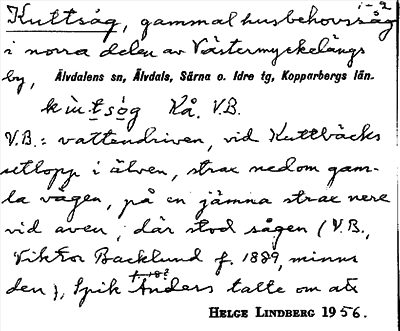 1-2
Kuttsåg, gammal husbehovssåg
i norra delen av Västermyckelängs
by, Älvdalens sn, Älvdals, Särna o. Idre tg, Kopparbergs län.
kùtsǫg Kå. V.B.
V.B.: vattendriven, vid Kuttbäcks
utlopp i älven, strax nedom gam-
la vägen, på en jämna strax nere
vid aven, där stod sågen (V.B.,
Viktor Backlund f. 1889, minns
den), Spik Anders talte om att
HELGE LINDBERG 1956.